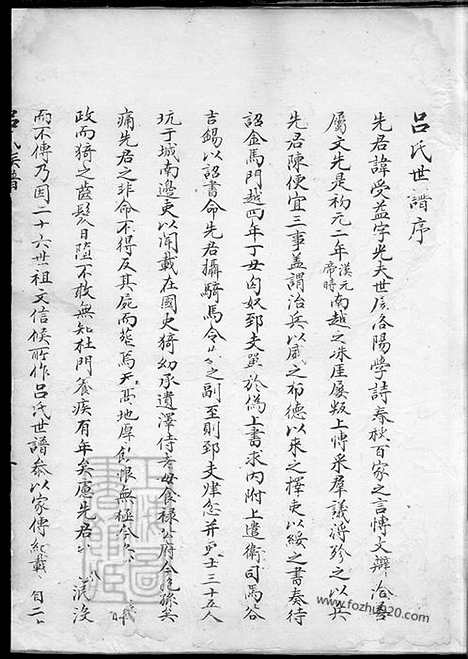 呂氏世譜序
先君諱受益字光夫世居洛陽學詩春秋百家之言博文辯洽善
屬文先是初元二年漢元帝時南越之珠崖屢叛上博采群議將殄之以兵
先君陳便宜三事蓋謂治兵以威之布德以來之擇吏以綏之書奏待
詔金馬門越四年丁丑匈奴郅支單於偽上書求內附上遣衛司馬谷
吉錫以詔書命先君攝騎馬令以之副至則郅支肆怠并勇士三十五人
坑于城南邊吏以聞載在國史猗幼承遺澤侍老母食祿公府令
痛先君之非命不得反其屍而葬焉天高地厚飲恨無極今
政而猗之齒髮日墮不敢無知杜門養疾有年矣慮先君 泯沒
而不傳乃因二十六世祖文信侯所作呂氏世譜參以家傳紀載 自二
呂氏族譜
www.fozhu920.com